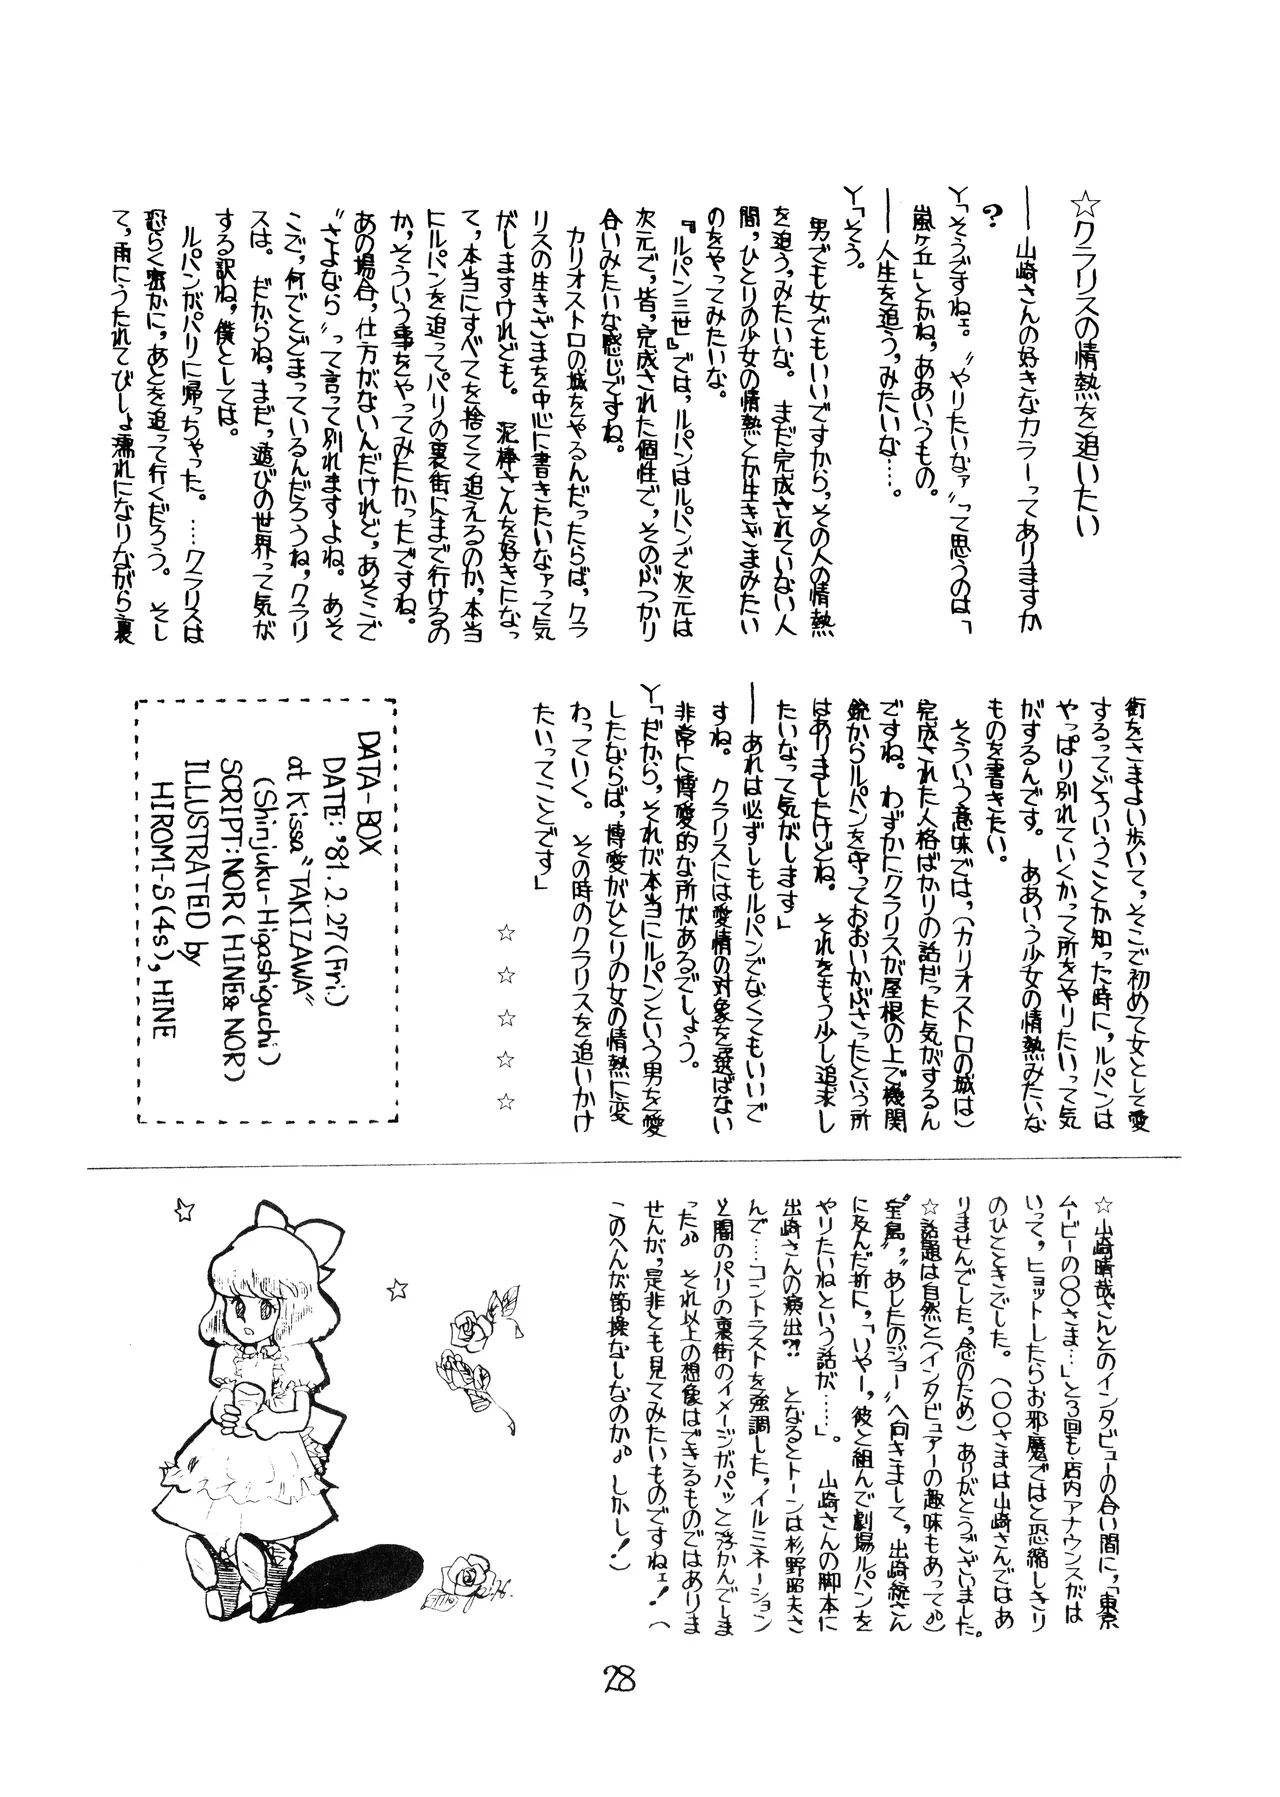 ☆クラリスの情熱を追いたい
――山崎さんの好きなカラーってありますか
?
Y「そうですねェ。〝やりたいなァ〟って思うのは「
嵐ヶ丘」とかね，ああいうもの。
――人生を追う，みたいな…。
Y「そう。
男でも女でもいいですから，その人の情熱
を追う，みたいな。まだ完成されていない人
間，ひとりの少女の情熱とか生きざまみたい
のをやってみたいな。
『ルパン三世』では，ルパンはルパンで次元は
次元で，皆，完成された個性で，そのぶつかり
合いみたいな感じですね。
カリオストロの城をやるんだったらば，クラ
リスの生きざまを中心に書きたいなァって気
がしますけれども。泥棒さんを好きになっ
て，本当にすべてを捨てて追えるのか，本当
にルパンを追ってパリの裏街にまで行けるの
か，そういう事をやってみたかったですね。
あの場合，仕方がないんだけれど，あそこで
〝さよなら〟って言って別れますよね。あそ
こで，何でとどまっているんだろうね，クラリ
スは。だからね，まだ，遊びの世界って気が
する訳ね，僕としては。
ルパンがパリに帰っちゃった。…クラリスは
恐らく密かに，あとを追って行くだろう。そし
て，雨にうたれてびしょ濡れになりながら裏
街をさまよい歩いて，そこで初めて女として愛
するってどういうことか知った時に，ルパンは
やっぱり別れていくかって所をやりたいって気
がするんです。ああいう少女の情熱みたいな
ものを書きたい。
そういう意味では，(カリオストロの城は)
完成された人格ばかりの話だった気がするん
ですね。わずかにクラリスが屋根の上で機関
銃からルパンを守っておおいかぶさったという所
はありましたけどね。それをもう少し追求し
たいなって気がします」
――あれは必ずしもルパンでなくてもいいで
すね。クラリスには愛情の対象を選ばない
非常に博愛的な所があるでしょう。
Y「だから，それが本当にルパンという男を愛
したならば，博愛がひとりの女の情熱に変
わっていく。その時のクラリスを追いかけ
たいってことです」
☆ ☆ ☆ ☆ ☆
DATA-BOX
DATE:'81.2.27(Fri.)
at Kissa〝TAKIZAWA〟
(Shinjuku-Higashiguchi)
SCRIPT:NOR(HINE&NOR)
ILLUSTRATED by
HIROMI-S(4s),HINE
☆山崎晴哉さんとのインタビューの合い間に，「東京
ムービーの○○さま…」と3回も店内アナウンスがは
いって，ヒョットしたらお邪魔ではと恐縮しきり
のひとときでした。(○○さまは山崎さんではあ
りませんでした，念のため)ありがとうございました。
☆話題は自然と(インタビュアーの趣味もあって♪)
〝宝島〟，〝あしたのジョー〟へ向きまして，出崎統さん
に及んだ折に，「いやー，彼と組んで劇場ルパンを
やりたいねという話が……」。山崎さんの脚本に
出崎さんの演出?! となるとトーンは杉野昭夫さ
んで…コントラストを強調した，イルミネーション
と闇のパリの裏街のイメージがパッと浮かんでしま
った♪ それ以上の想像はできるものではありま
せんが，是非とも見てみたいものですねェ! (
このへんが節操なしなのか♪ しかし!)
28